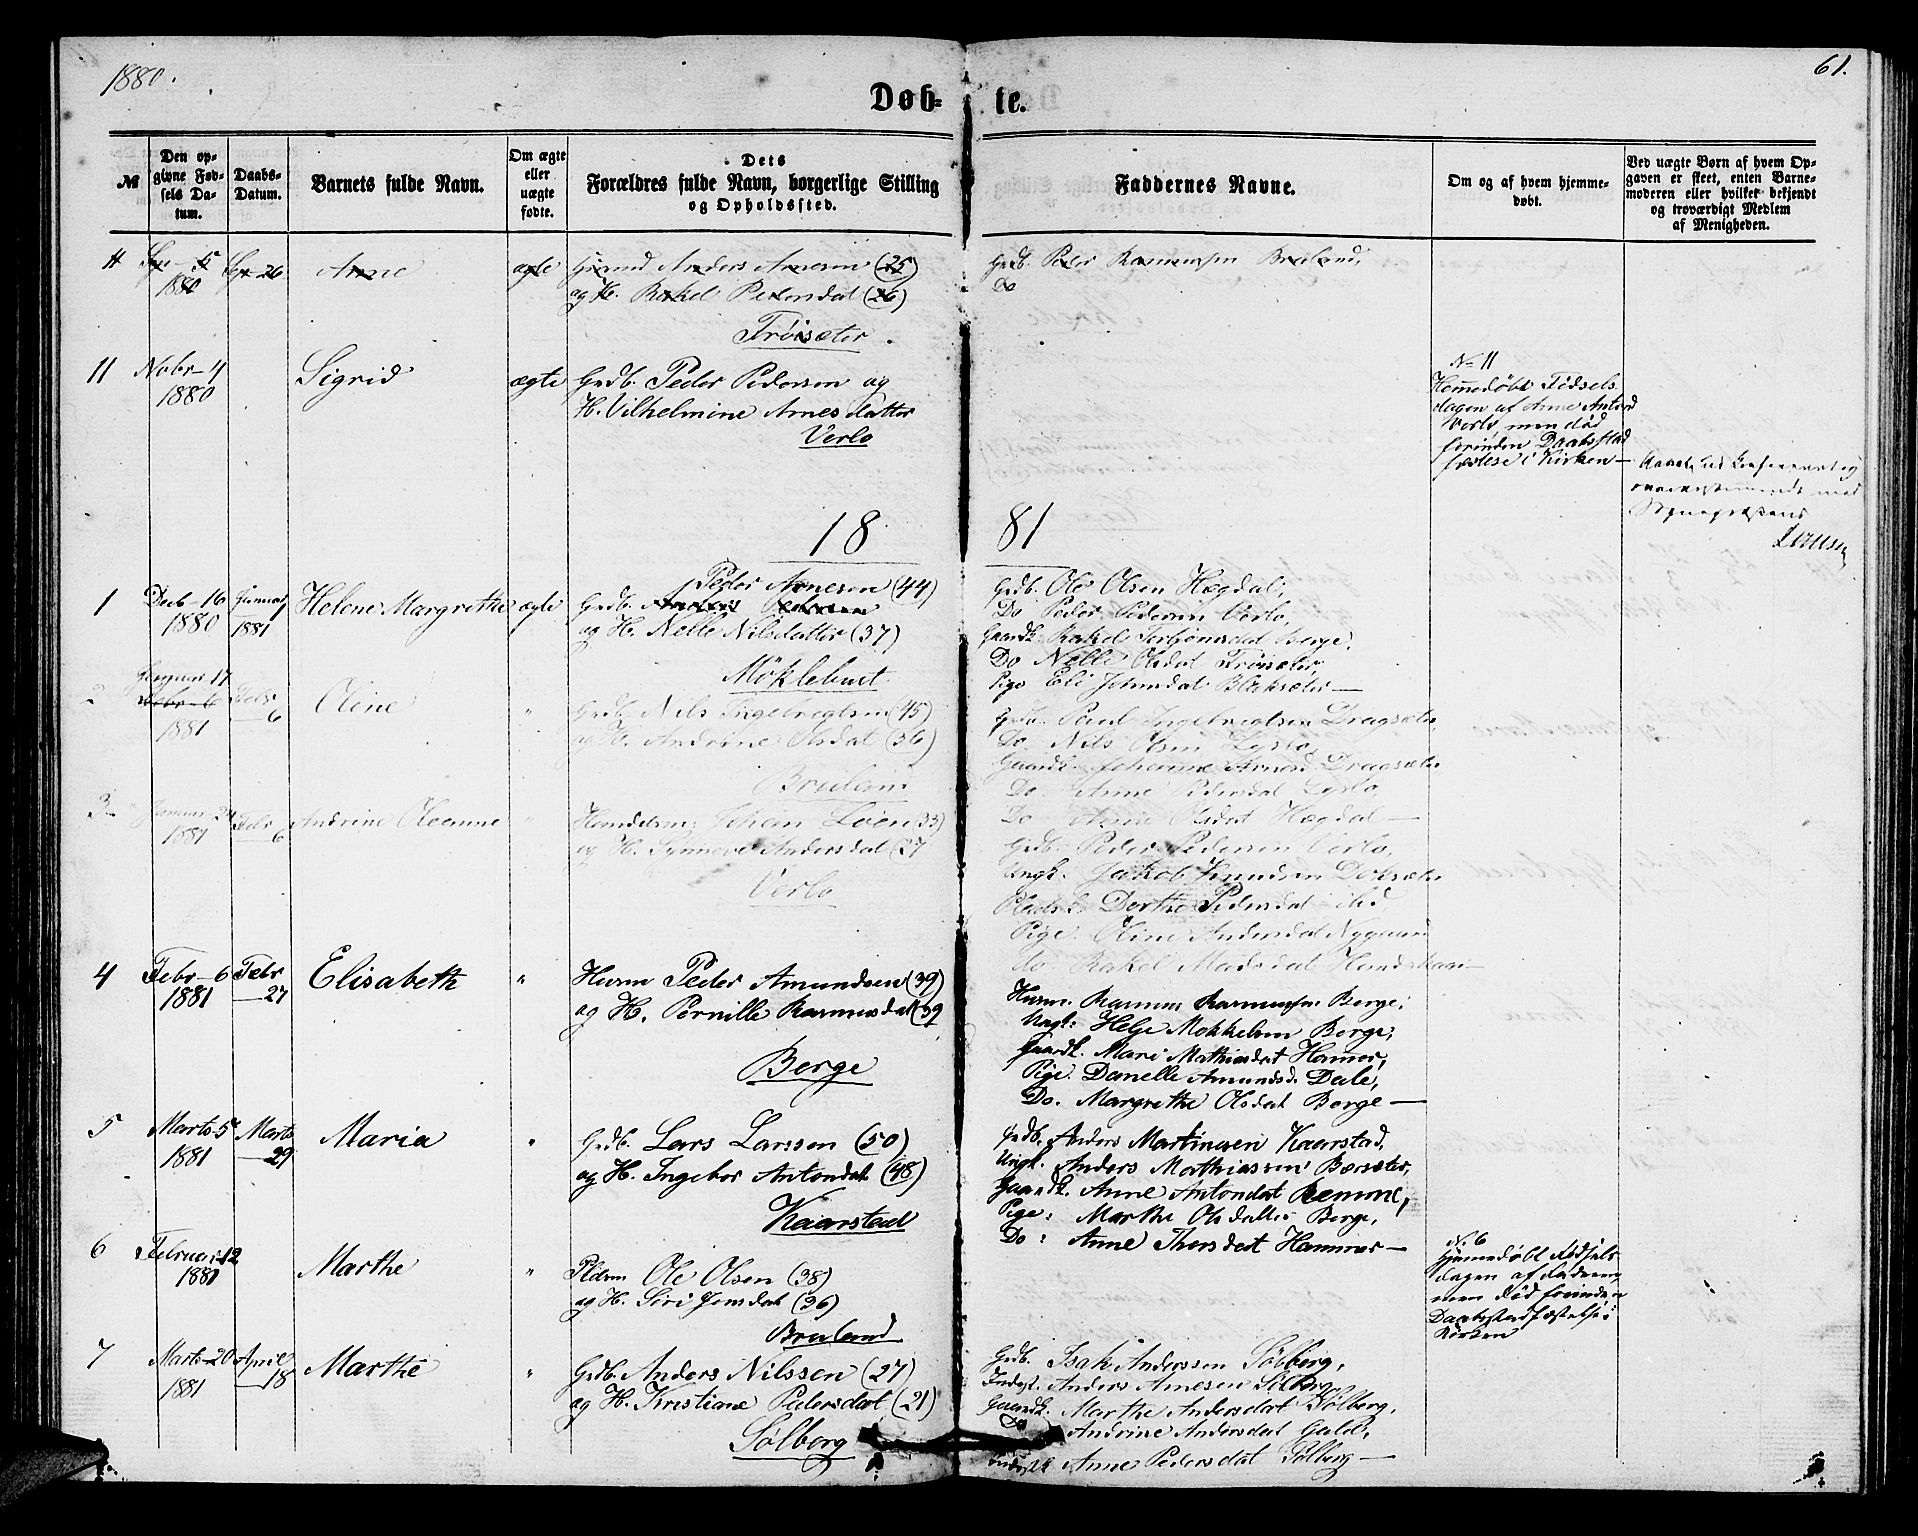 1880.
61.
Døb- te.
№
Den opgivne Fødsels Datum.
Daabs-Datum.
Barnets fulde Navn.
Om ægte eller uægte fødte.
Dets Forældres fulde Navn, borgerlige Stilling og Opholdssted.
Faddernes Navne.
Om og af hvem hjemmedøbt.
Ved uægte Børn af hvem Opgaven er skeet, enten Barnemoderen eller hvilket bekjendt og troværdigt Medlem af Menigheden.
11 5 1880 26 Anne ægte Anders Arnesen (25)
og H. Rakel Pedersdat (26)
Trøisæter.
Grdb. Peder Rasmussen Bruland,
Do
11 Nobr- 4 1880 Sigrid ægte Grdb. Peder Pedersen og
H. Vilhelmine Arnesdatter
Verlo
No 11
Hemmedøbt Fødsels
dagen af Anne Antond
Verlo, men død
forinden Daabsstad
fæstese i Kirken-
18 81
1 Decb-16 1880 Januar 1 1881 Helene Margrethe ægte Grdb. Peder Arnesen (44)
og H. Nelle Nilsdatter (37)
Möklebust
Grdb. Ole Olsen Hægdal,
Do Peder Pedersen Verlo,
Gaardk. Rakel Berge,
Do Nelle Olsdat Trøisæter,
Pige Eli Johnsdat Blaksæter-
2 Januar 17 1881 Febr 6 Oline " Grdb. Nils Ingebregtsen (45)
og H. Andrine Olsdat (36)
Bruland
Grdb. Paul Ingebregtsen Dragsæter
Do. Nils Olsen Lyslo,
Gaardk. Johanne Dragsæter
Do. Anne Pedersdat Lyslo,
Do Anne Olsdat Hægdal-
3 Januar 24 1881 Febr 6 Andrine Oleanne " Handelsm. Johan Loen (33)
og H. Synnøve Andersdat (27
Verlo
Grdb. Peder Pedersen Verlo,
Ungk. Jakob Knudsen Doksæter
Pladsk. Dorthe Pedersdat ibid
Pige. Oline Andersdat Nygaard
do Rakel Madsdat
4 Febr-6 1881 Febr 27 Elisabeth " Husm Peder Amundsen (39)
og H. Pernille Rasmusdat (39
Berge
Husm. Rasmus Rasmussen Berge,
Ungk: Helge Mokkelsen Berge,
Gaardk. Mari Mathiasdat Hammer,
Pige. Danelle Amundsd. Dale,
Do. Margrethe Olsdat Berge-
5 Marts-5 1881 Marts 29 Maria " Grdb. Lars Larssen (50)
og H. Ingebor Antondat (48)
Kaarstad
Grdb. Anders Martinusen Kaarstad,
Ungk. Anders Mathiassen Bærsæter,
Gaardk. Anne Antondat Remone,
Pige: Marthe Olsdatter Berge,
Do: Anne Thorsdat Hammer-
6 Februar-12 1881 Marthe " Pldsm Ole Olsen (38)
og H. Siri Jensdat (36)
Bruland
N. 6
Hjemmedøbt Fødsels
dagen af Faderen,
men død forinden
Daabsstadfæstelse i
Kirken
7 Marts-20 1881 April 18 Marthe " Grdb. Anders Nilssen (27)
og H. Kristiane Pedersdat (21)
Sølberg
Grdb. Isak Anderssen Sølberg,
Inderst. Anders Arnesen Sølberg
Gaardk. Marthe Andersdat Sølberg,
Do Andrine Andersdat Gald,
Anne Pedersdat Sølberg-